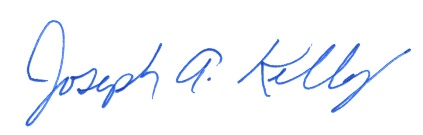 Joseph A. Kelly